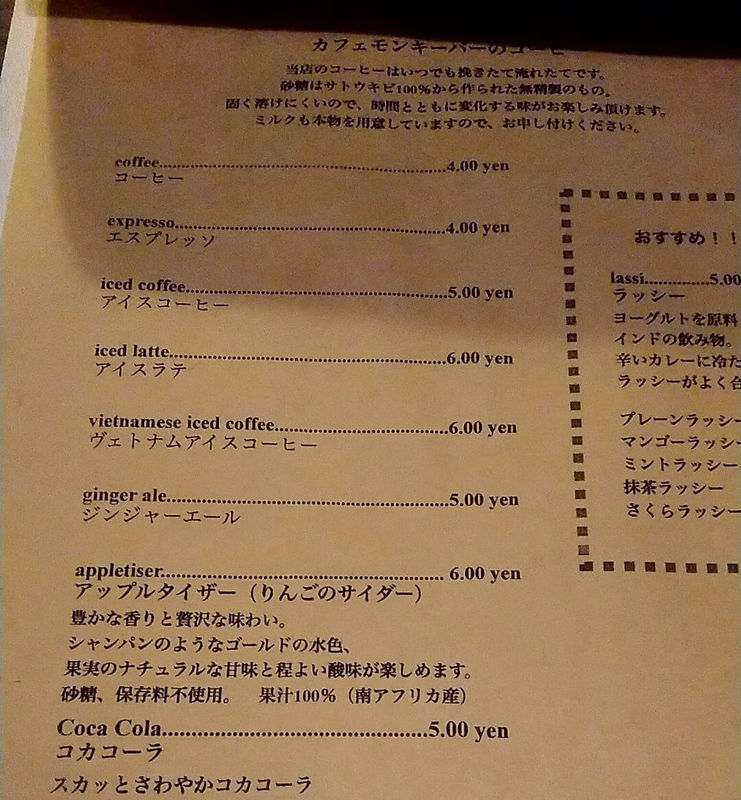 カフェモンキーバーのコーヒー
当店のコーヒーはいつでも挽きたて淹れたてです。
砂糖はサトウキビ100%から作られた無精製のもの。
固く溶けにくいので、時間とともに変化する味がお楽しみ頂けます。
ミルクも本物を用意していますので、お申し付けください。
coffee..........4.00 yen
コーヒー
expresso..........4.00 yen
エスプレッソ
iced coffee..........5.00 yen
アイスコーヒー
iced latte..........6.00 yen
アイスラテ
vietnamese iced coffee..........6.00 yen
ヴェトナムアイスコーヒー
ginger ale..........5.00 yen
ジンジャーエール
appletiser.......... 6.00 yen
アップルタイザー（りんごのサイダー）
豊かな香りと贅沢な味わい。
シャンパンのようなゴールドの水色、
果実のナチュラルな甘味と程よい酸味が楽しめます。
砂糖、保存料不使用。　果汁100%（南アフリカ産）
Coca Cola..........5.00 yen
コカコーラ
スカッとさわやかコカコーラ
おすすめ！！
lassi..........5.00
ラッシー
ヨーグルトを原料
インドの飲み物。
辛いカレーに冷た
ラッシーがよく合
プレーンラッシー
マンゴーラッシー
ミントラッシー
抹茶ラッシー
さくらラッシー